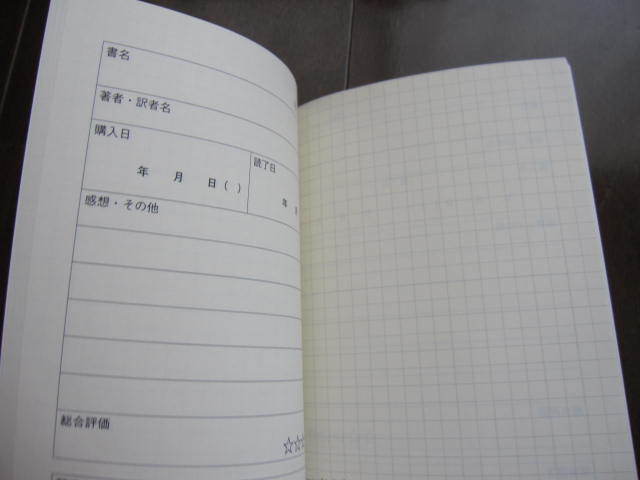 書名
著者・訳者名
購入日
読了日
年 月 日( )
年
感想・その他
総合評価
☆☆